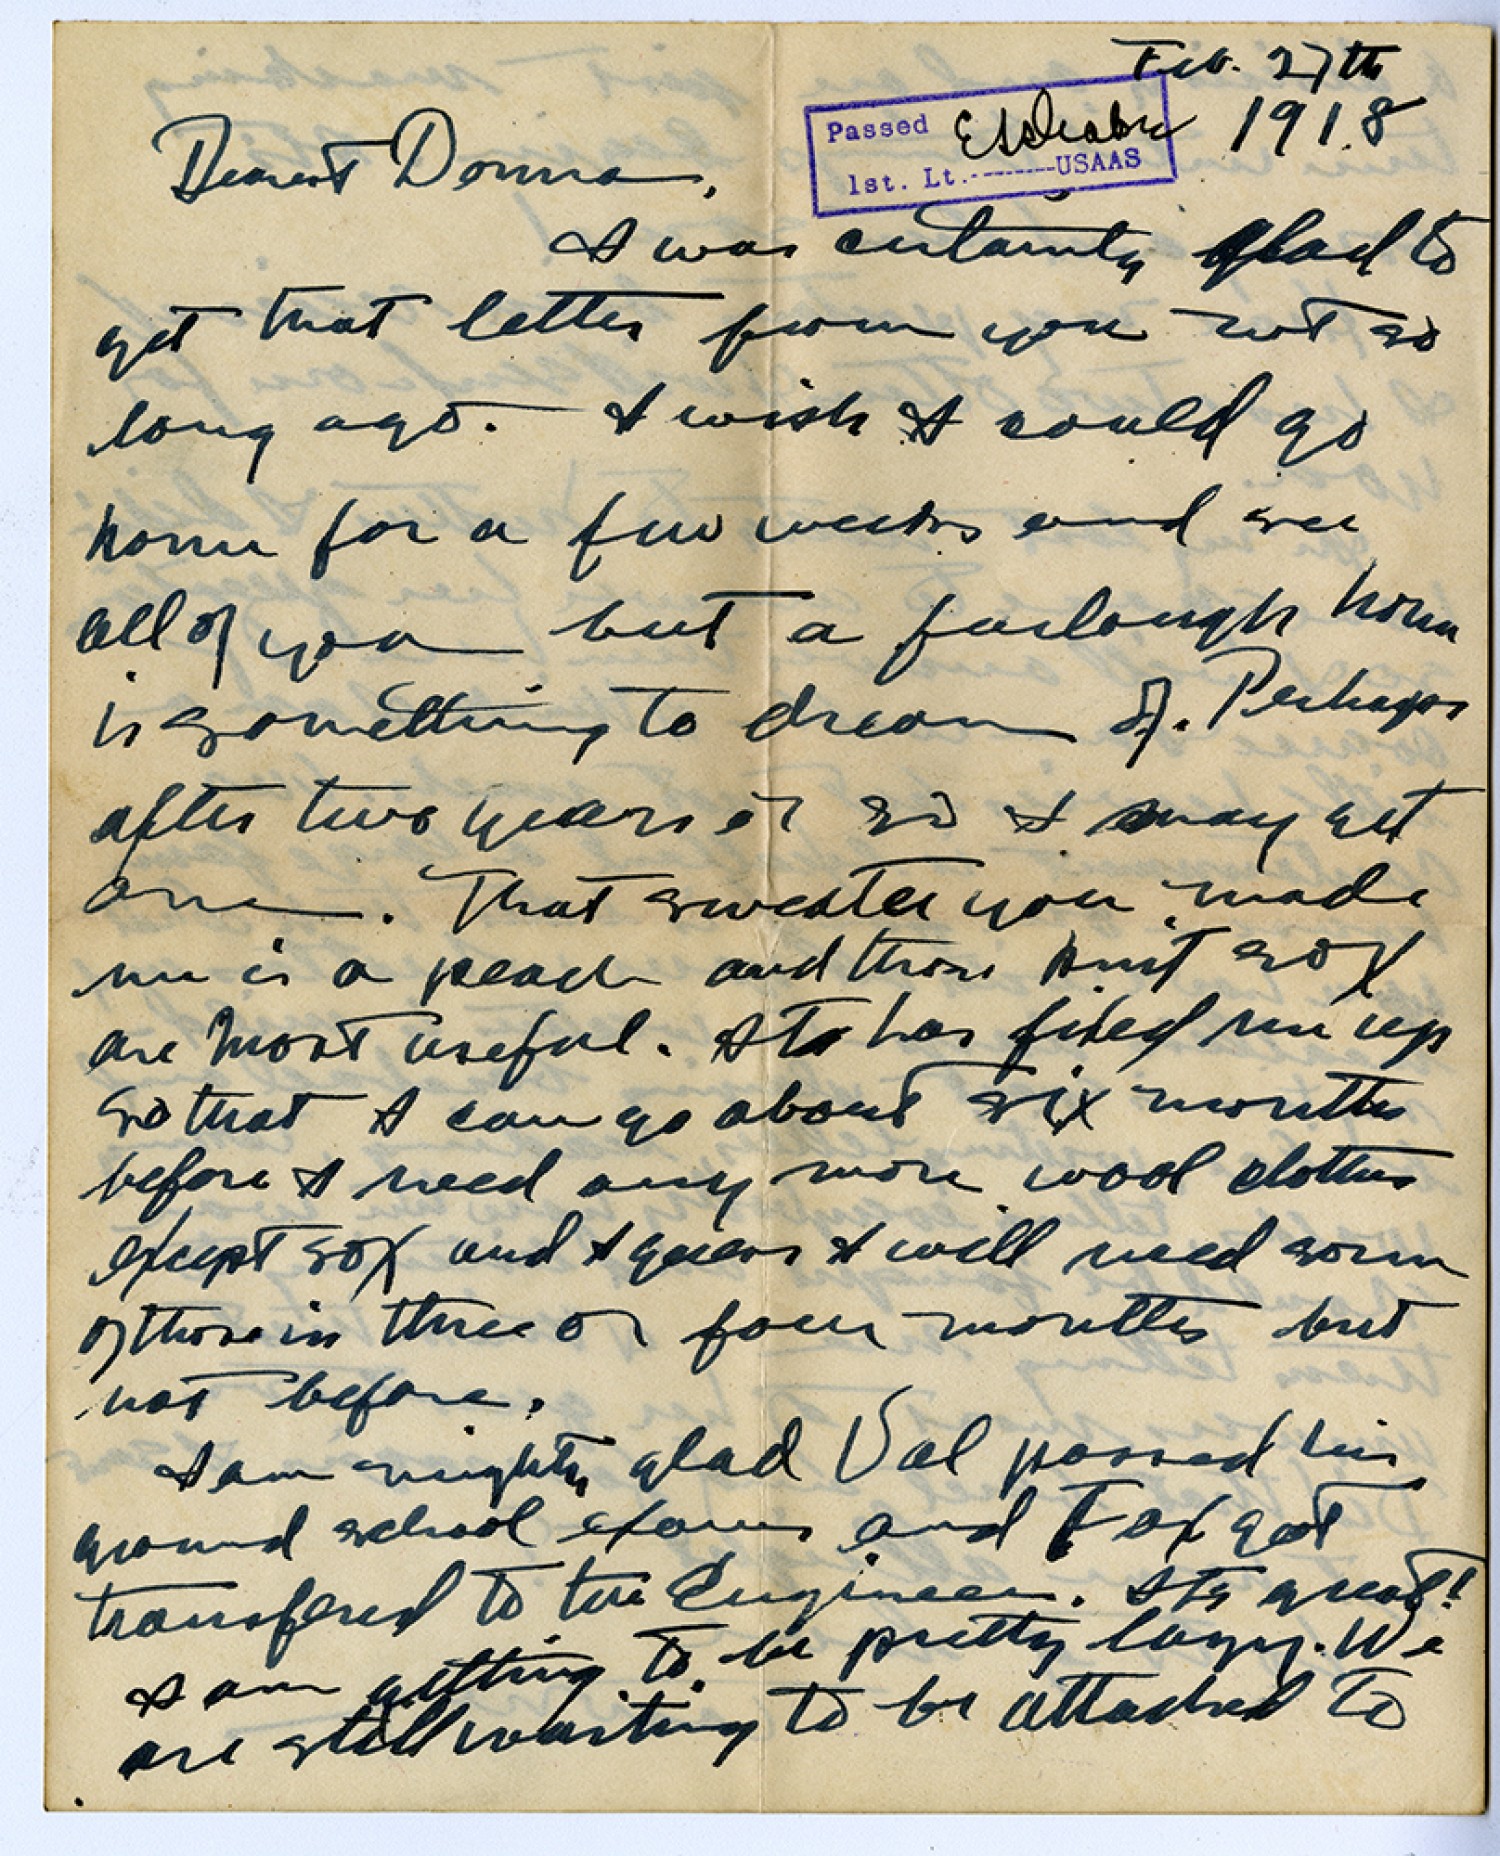 Feb. 27th
1918
Passed
1st. Lt.--------USAAS
Dearest Donna,
I was certainly glad to
get that letter from you not so
long ago. I wish I could go
home for a few weeks and see
all of you but a furlough home
is something to dream of. Perhaps
after two years or so I may get
one. That sweater you made
me is a peach and those knit sox
are most useful. Ita has fixed me up
so that I can go about six months
before I need any more wool clothes
except sox and I guess I will need some
of those in three or four months but
not before.
I am mighty glad Val passed his
ground school exams and Fox got
transfered to the Engineers. Its great!
I am getting to be pretty lazy. We
are still waiting to be attached to